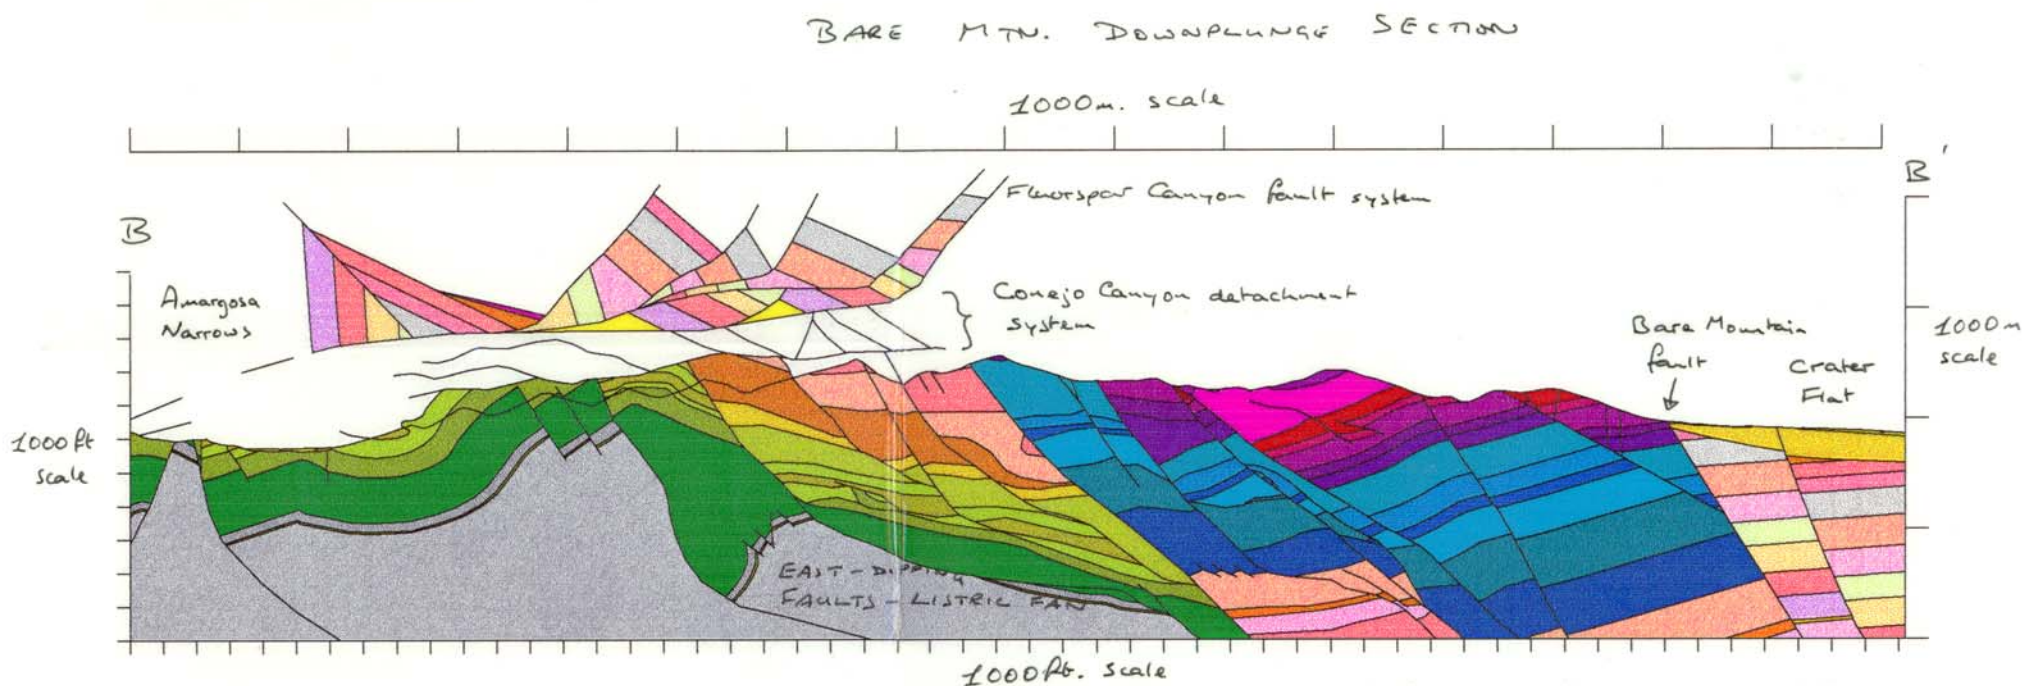 BARE MTN. DOWNPLUNGE SECTION
1000m. scale
B'
Fluorspar Canyon fault system
B
Amargosa
Narrows
Conejo Canyon detachment
system
Bare Mountain
fault
Crater
Flat
1000m
scale
1000ft
scale
EAST-DIPPING
FAULTS-LISTRIC FAN
1000ft. scale